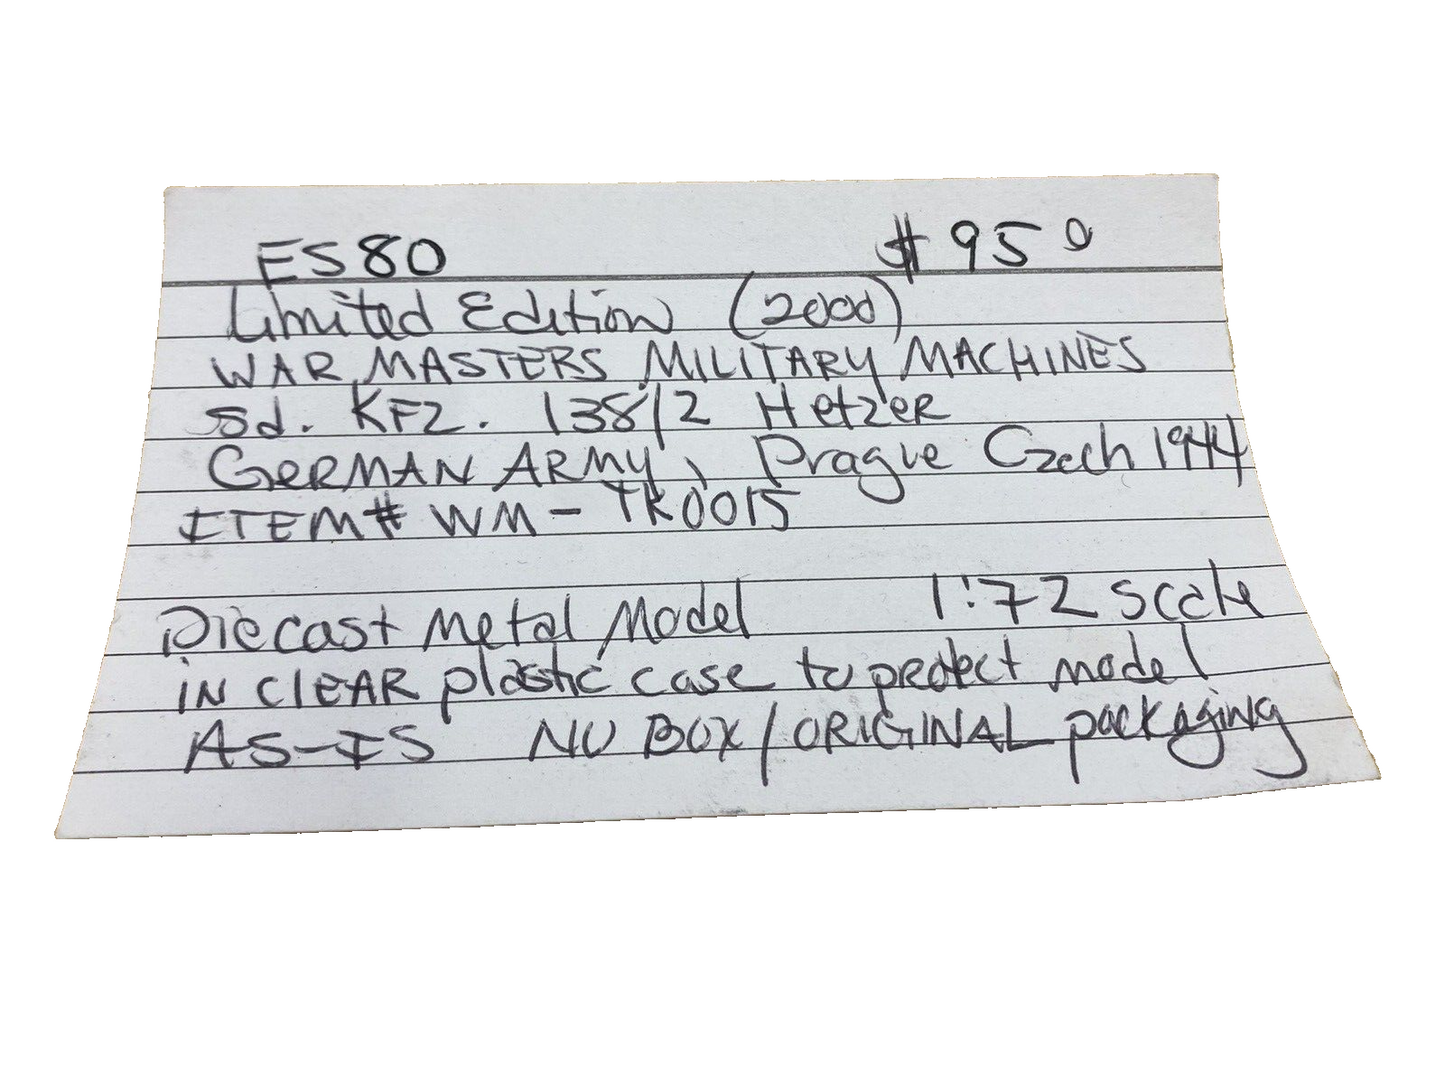 ES80 $95 0
Limited Edition (2000)
WAR MASTERS MILITARY MACHINES
Sd. KFZ. 138/2 Hetzer
GERMAN ARMY, Prague Czech 1944
ITEM# WM-TK0015
Diecast Metal Model 1:72 scale
IN CLEAR plastic case to protect model
AS-IS NO BOX/ORIGINAL packaging